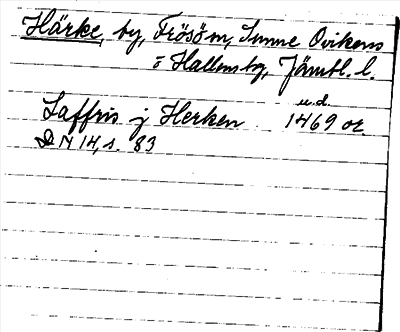 Härke, by, Frösö sn, Sunne Ovikens
o Hallens tg, Jämtl. l.
u.d.
Laffris j Herken 1469 or.
DN 14, s. 83